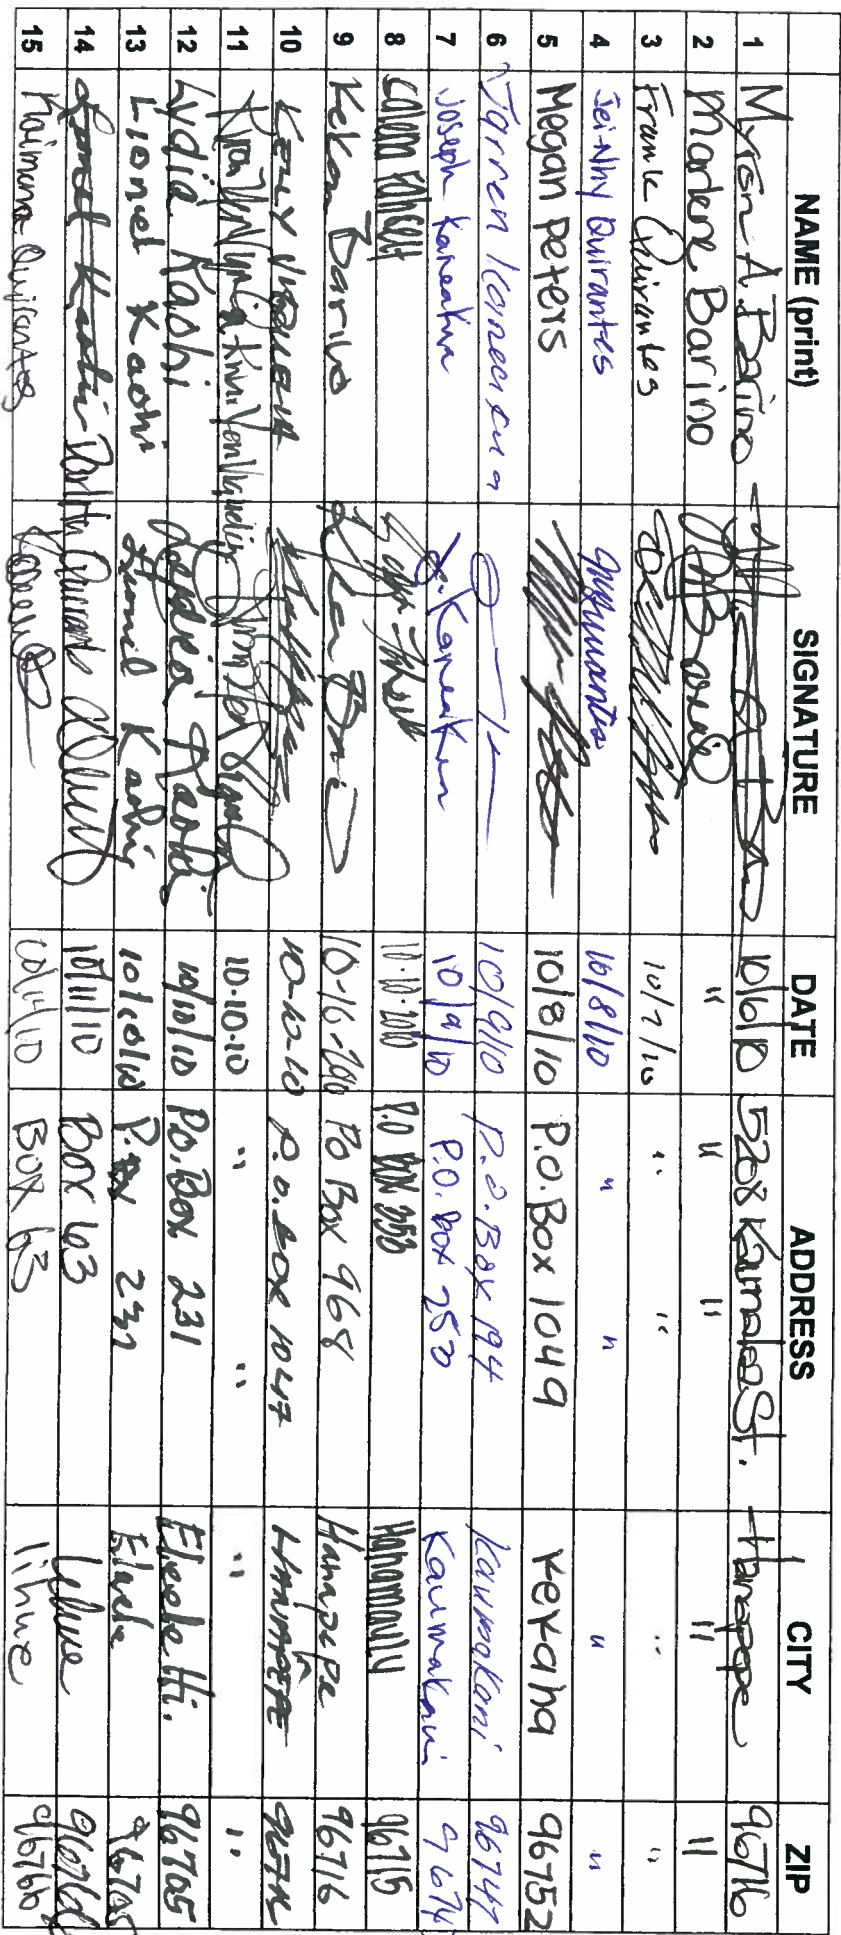 NAME (print) SIGNATURE DATE ADDRESS CITY ZIP
1 Myron A. Barino 10/6/10 5208 St. Hanapepe 96716
2 Marlene Barino " " " " " "
3 Frank Quirantes 10/7/10 " " " "
4 Jei-Nhy Quirantes 10/8/10 " " " "
5 Megan Peters 10/8/10 P.O. Box 1049 Kekaha 96752
6 Jarren Kaneakua 10/9/10 P.O. Box 194 Kaumakani 96747
7 Joseph Kaneakua J. Kaneakua 10/9/10 P.O. Box 253 Kaumakani 96747
8 10-10-2010 P.O Box Hanamaulu 96715
9 Keka Barino Keka 10-10-2010 PO Box 968 Hanapepe 96716
10 Kelly 10-10-10 P.O. Box 1047 Hanapepe 96716
11 10.10.10 " " " "
12 Lydia Kaohi Lydia Kaohi 10/10/10 P.O. Box 231 Eleele Hi. 96705
13 Lionel Kaohi Lionel Kaohi 10/10/10 Eleele 96705
14 Quirante 10/11/10 BOX 63 Lihue 96766
15 Kaimana Quirantes 10/11/10 BOX 63 lihue 96766